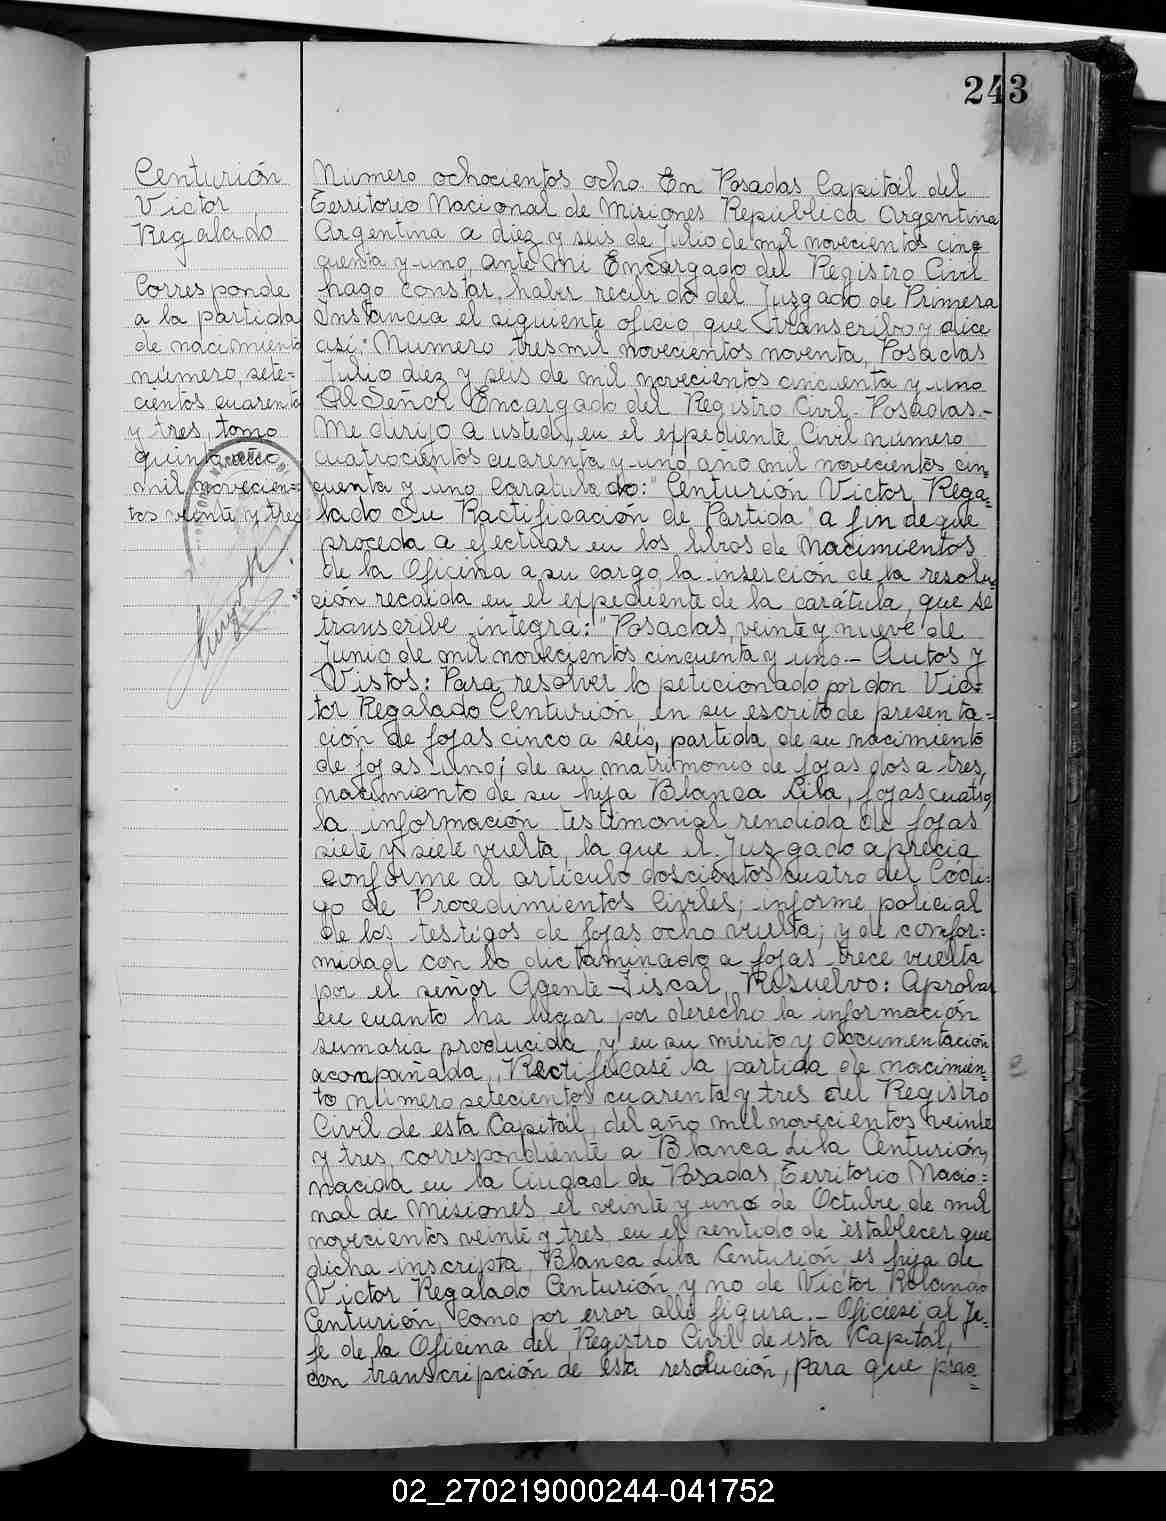 243
Centurión
Victor
Regalado
Corresponde
a la partida
de nacimiento
número, sete=
cientos cuarenta
y tres, tomo
quinto año
mil novecien=
tos veinte y tres
Número ochocientos ocho. En Posadas Capital del
Territorio Nacional de Misiones República Argentina
Argentina a diez y seis de Julio de mil novecientos cin=
cuenta y uno, ante mi Encargado del Registro Civil
hago constar, haber recibido del Juzgado de Primera
Instancia el siguiente oficio que transcribo y dice
asi: Numero tres mil novecientos noventa, Posadas
Julio diez y seis de mil novecientos cincuenta y uno
Al Señor Encargado del Registro Civil - Posadas.-
Me dirijo a usted, en el expediente Civil número
cuatrocientos cuarenta y uno, año mil novecientos cin=
cuenta y uno, Caratulado: "Centurión Victor Rega=
lado Su Ractificación de Partida" a fin de que
proceda a efectuar en los libros de Nacimientos
de la Oficina a su cargo, la inserción de la resolu=
ción recaida en el expediente de la carátula, que se
transcribe integra: "Posadas, veinte y nueve de
Junio de mil novecientos cincuenta y uno - Autos y
Vistos: Para resolver lo peticionado por don Vic=
tor Regalado Centurión, en su escrito de presenta=
ción de fojas cinco a seis, partida de su nacimiento
de fojas uno; de su matrimonio de fojas dos a tres,
nacimiento de su hija Blanca Lila, fojas cuatro,
la información testimonial rendida de fojas
siete y siete vuelta, la que el Juzgado aprecia
conforme al artículo doscientos cuatro del Códi=
go de Procedimientos Civiles; informe policial
de los testigos de fojas ocho vuelta; y de confor=
midad con lo dictaminado a fojas trece vuelta
por el señor Agente Fiscal, Resuelvo: Aprobar
en cuanto ha lugar por derecho la información
sumaria producida y en su mérito y documentación
acompañada, Rectificasé la partida de nacimien=
to número setecientos cuarenta y tres del Registro
Civil de esta Capital, del año mil novecientos veinte
y tres, correspondiente a Blanca Lila Centurión,
nacida en la Ciudad de Posadas, Territorio Nacio=
nal de Misiones, el veinte y uno de Octubre de mil
novecientos veinte y tres, en el sentido de establecer que
dicha inscripta, Blanca Lila Centurión, es hija de
Victor Regalado Centurión y no de Victor Rolando
Centurión, como por error allí figura.- Oficiesé al Je=
fe de la Oficina del Registro Civil de esta Capital,
con transcripción de esta resolución, para que prac=
02_270219000244-041752